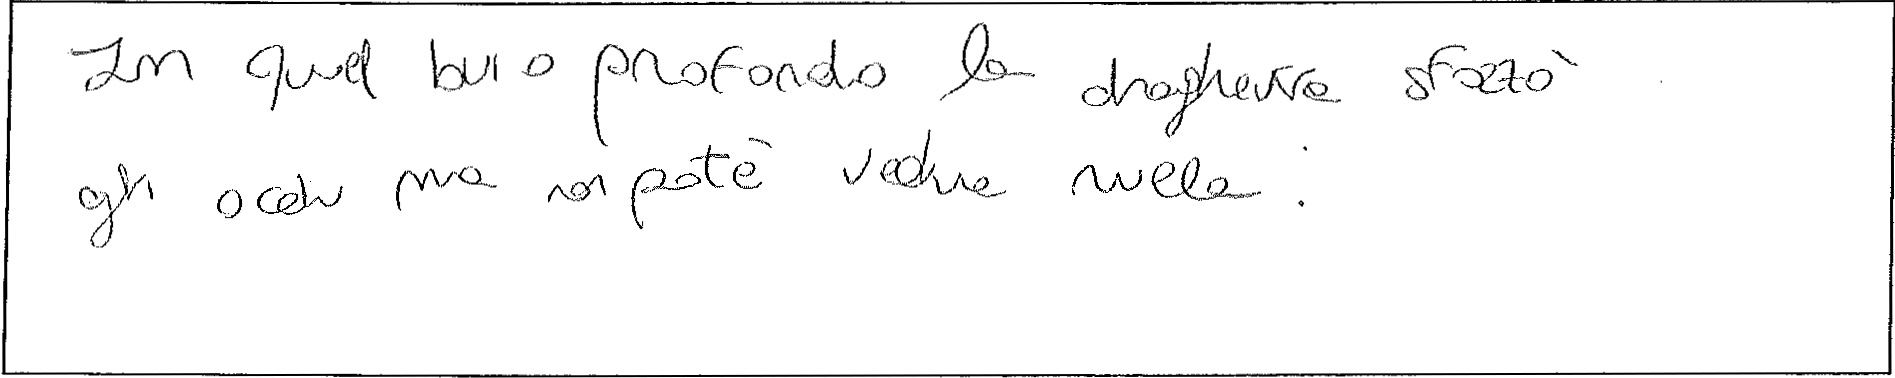 In quel buio profondo la draghetta sforzò
gli occhi ma non potè vedere nulla.